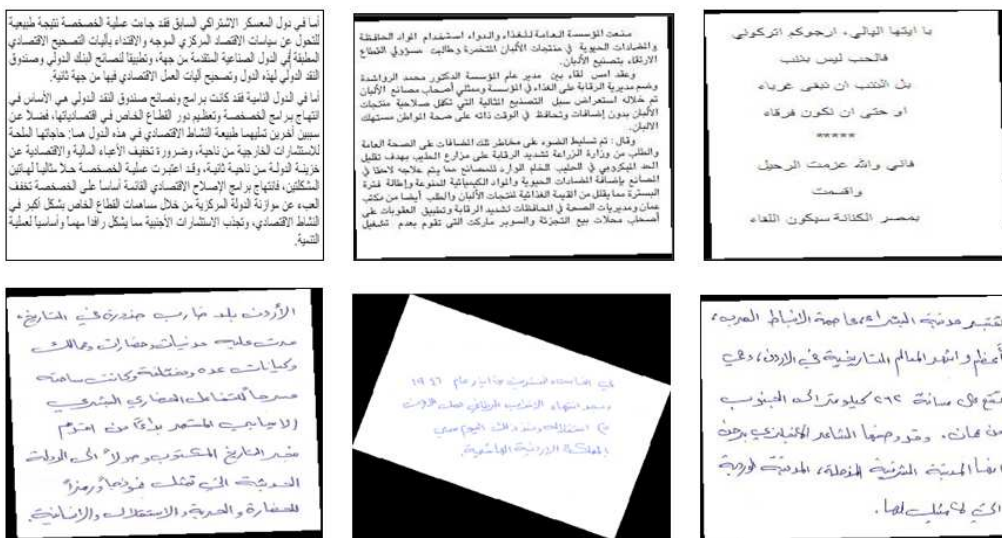 أما في دول المعسكر الاشتراكي السابق فقد جاءت عملية الخصخصة نتيجة طبيعية
للتحول عن سياسات الاقتصاد المركزي الموجه والاقتداء بآليات التصحيح الاقتصادي
المطبقة في الدول الصناعية المتقدمة من جهة، وتطبيقاً لنصائح البنك الدولي وصندوق
النقد الدولي لهذه الدول وتصحيح آليات العمل الاقتصادي فيها من جهة ثانية.
أما في الدول النامية فقد كانت برامج ونصائح صندوق النقد الدولي هي الأساس في
انتهاج برامج الخصخصة وتعظيم دور القطاع الخاص في اقتصادياتها، فضلاً عن
سببين آخرين تمليهما طبيعة النشاط الاقتصادي في هذه الدول هما: حاجاتها الملحة
للاستثمارات الخارجية من ناحية، وضرورة تخفيف الأعباء المالية والاقتصادية عن
خزينة الدولة من ناحية ثانية، وقد اعتبرت عملية الخصخصة حلا مثالياً لهاتين
المشكلتين، فانتهاج برامج الإصلاح الاقتصادي القائمة أساسا على الخصخصة تخفف
العبء عن موازنة الدولة المركزية من خلال مساهمات القطاع الخاص بشكل أكبر في
النشاط الاقتصادي، وتجذب الاستثمارات الأجنبية مما يشكل رافدا مهماً وأساسياً لعملية
التنمية.
منعت المؤسسة العامة للغذاء والدواء استخدام المواد الحافظة
والمضادات الحيوية في منتجات الألبان المتخمرة وطالبت مسؤولي القطاع
الارتقاء بتصنيع الألبان.
وعقد امس لقاء بين مدير عام المؤسسة الدكتور محمد الرواشدة
وضم مديرية الرقابة على الغذاء في المؤسسة وممثلي أصحاب مصانع الألبان
تم خلاله استعراض سبل التصنيع المثالية التي تكفل صلاحية منتجات
الألبان بدون إضافات وتحافظ في الوقت ذاته على صحة المواطن مستهلك
الألبان.
وقال: تم تسليط الضوء على مخاطر تلك الضافات على الصحة العامة
والطلب من وزارة الزراعة تشديد الرقابة على مزارع الحليب بهدف تقليل
الحد الميكروبي في الحليب الخام الوارد للمصانع مما يتم علاجه لاحقا في
المصانع بإضافة المضادات الحيوية والمواد الكيميائية الممنوعة وإطالة فترة
البسترة مما يقلل من القيمة الغذائية لمنتجات الألبان والطلب أيضا من مكتب
عمان ومديريات الصحة في المحافظات تشديد الرقابة وتطبيق العقوبات على
أصحاب محلات بيع التجزئة والسوبر ماركت التي تقوم بعدم تشغيل
يا ايتها الليالي، ارجوكم اتركوني
فالحب ليس بذنب
بل الذنب ان نبقى غرباء
او حتى ان نكون فرقاء
*****
فاني والله عزمت الرحيل
واقسمت
بمصر الكنانة سيكون اللقاء
الأردن بلد ضارب جذوره في التاريخ،
مرت عليه مدنيات وحضارات وممالك
وكيانات عده ومختلفة وكانت ساحته
مسرحاً للتفاعل الحضاري البشري
الايجابي المستمر بدءاً من اقدم
فجر التاريخ المكتوب وصولاً الى الدولة
الحديثة التي تمثل نموذجاً ورمزاً
للحضارة والحرية والاستقلال والانسانية.
في الخامس والعشرين من ايار عام ١٩٤٦
وبعد انتهاء الانتداب البريطاني حصل الاردن
استقلاله ومنذ ذلك اليوم سمي
المملكة الاردنية الهاشمية.
تعتبر مدينة البتراء، عاصمة الانباط العرب،
أعظم واشهر المعالم التاريخية في الاردن، وهي
تقع على مسافة ٢٦٢ كيلومتر الى الجنوب
من عمان. وقد وصفها الشاعر الانجليزي بيرجن
انها المدينة الشرقية المذهلة، المدينة الوردية
التي لا مثيل لها.